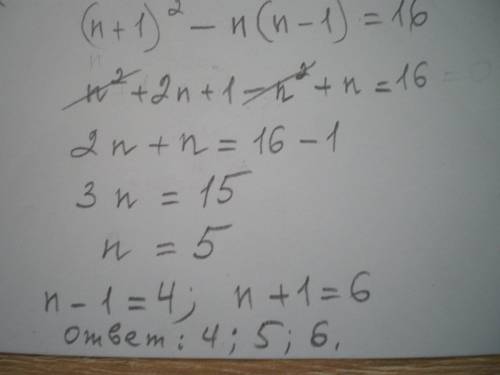 (n+1)² - n(n-1) = 16
n² + 2n + 1 - n² + n = 16
2n + n = 16 - 1
3n = 15
n = 5
n - 1 = 4; n + 1 = 6
ответ: 4; 5; 6.